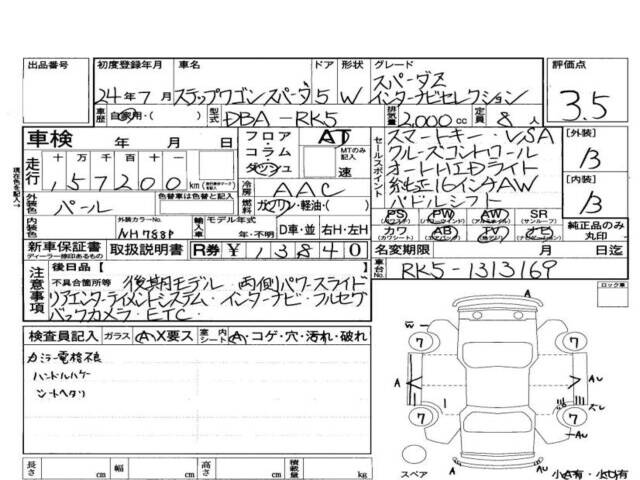 出品番号 初度登録年月 車名 ドア 形状 グレード 評価点
24年7月 ステップワゴンスパーダ 5 W スパーダZ インターナビセレクション 3.5
車歴 自家用・( ) 型式 DBA-RK5 排気量 2,000cc 定員 8人
車検 年 月 日 フロア・コラム・ダッシュ AT MTのみ記入 速
セールスポイント
スマートキー・VSA
クルーズコントロール
オートHIDライト
純正16インチAW
パドルシフト
[外装] B
[内装] B
現在距離を記入→ 走行 十 万 千 百 十 一
157200 km
冷房 AAC
外装色 パール 色替車は色替と記入 燃料 ガソリン・軽油・( )
内装色 外装カラーNo. NH788P 輸入車 モデル年式 年・不明 D車・並 右H・左H
PS PW AW SR(サンルーフ)
カワ(カワシート) AB TV ナビ 純正品のみ丸印
新車保証書 ディーラー捺印あるもの 取扱説明書 R券 ¥13840 名変期限 月 日迄
車台No. RK5-1313169
注意事項 後日品[ ]
不具合箇所等 後期モデル 両側パワースライド
リアエンターテイメントシステム・インターナビ・フルセグ
バックカメラ・ETC・
ロック車
検査員記入 ガラス A・X要ス 室内シート A・コゲ・穴・汚れ・破れ
カラー電格不良
ハンドルハゲ
シートヘタリ
W A
7 7
A A AU
7 7
AU
A AU
スペア
小A有・小U有
長さ cm 幅 cm 高さ cm 積載量 kg